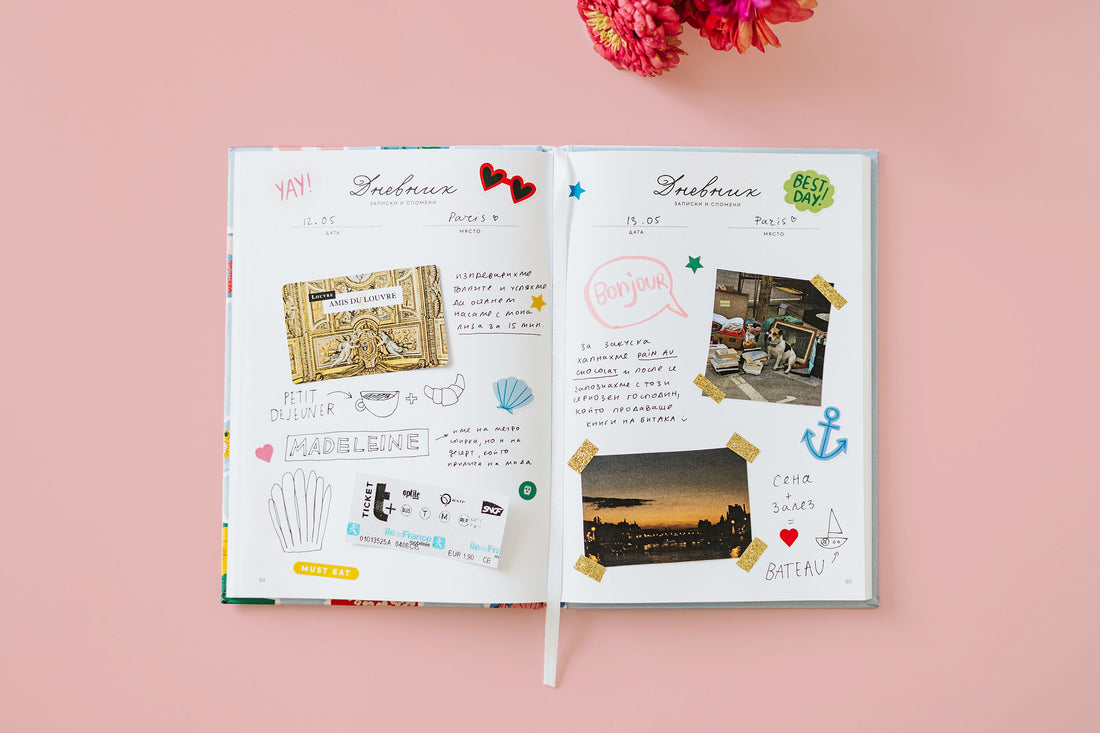 YAY!
Дневник
ЗАПИСКИ И СПОМЕНИ
12.05
Paris
ДАТА
МЯСТО
LOUVRE
AMIS DU LOUVRE
изпреварихме
тълпите и успяхме
да останем
насаме с мона
лиза за 15 мин.
PETIT
DEJEUNER
+
MADELEINE
име на метро
спирка, но и на
десерт, който
прилича на мида
TICKET
t+
optile
BUS
T
M
SNCF
île de France
01013525A
EUR 1.90
CE
MUST EAT
64
Дневник
ЗАПИСКИ И СПОМЕНИ
BEST
DAY!
13.05
Paris
ДАТА
МЯСТО
Bonjour
за закуска
хапнахме pain au
chocolat и после се
запознахме с този
сериозен господин,
който продаваше
книги на битака
Сена
+
залез
=
BATEAU
65